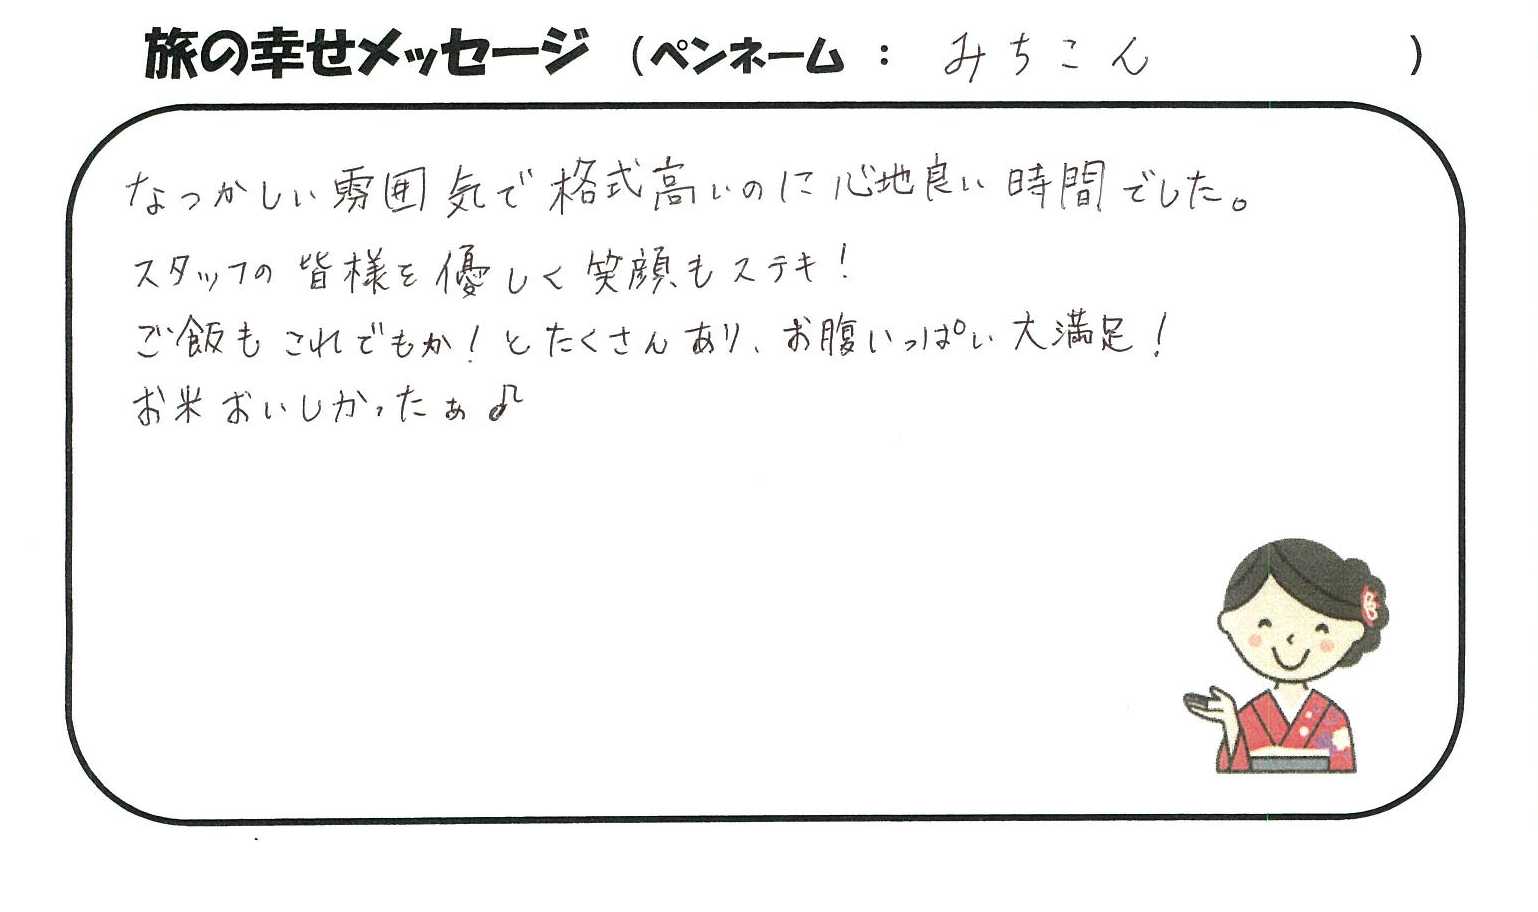 旅の幸せメッセージ (ペンネーム : みちこん )
なつかしい雰囲気で格式高いのに心地良い時間でした。
スタッフの皆様も優しく笑顔もステキ！
ご飯もこれでもか！とたくさんあり、お腹いっぱい大満足！
お米おいしかったぁ♪